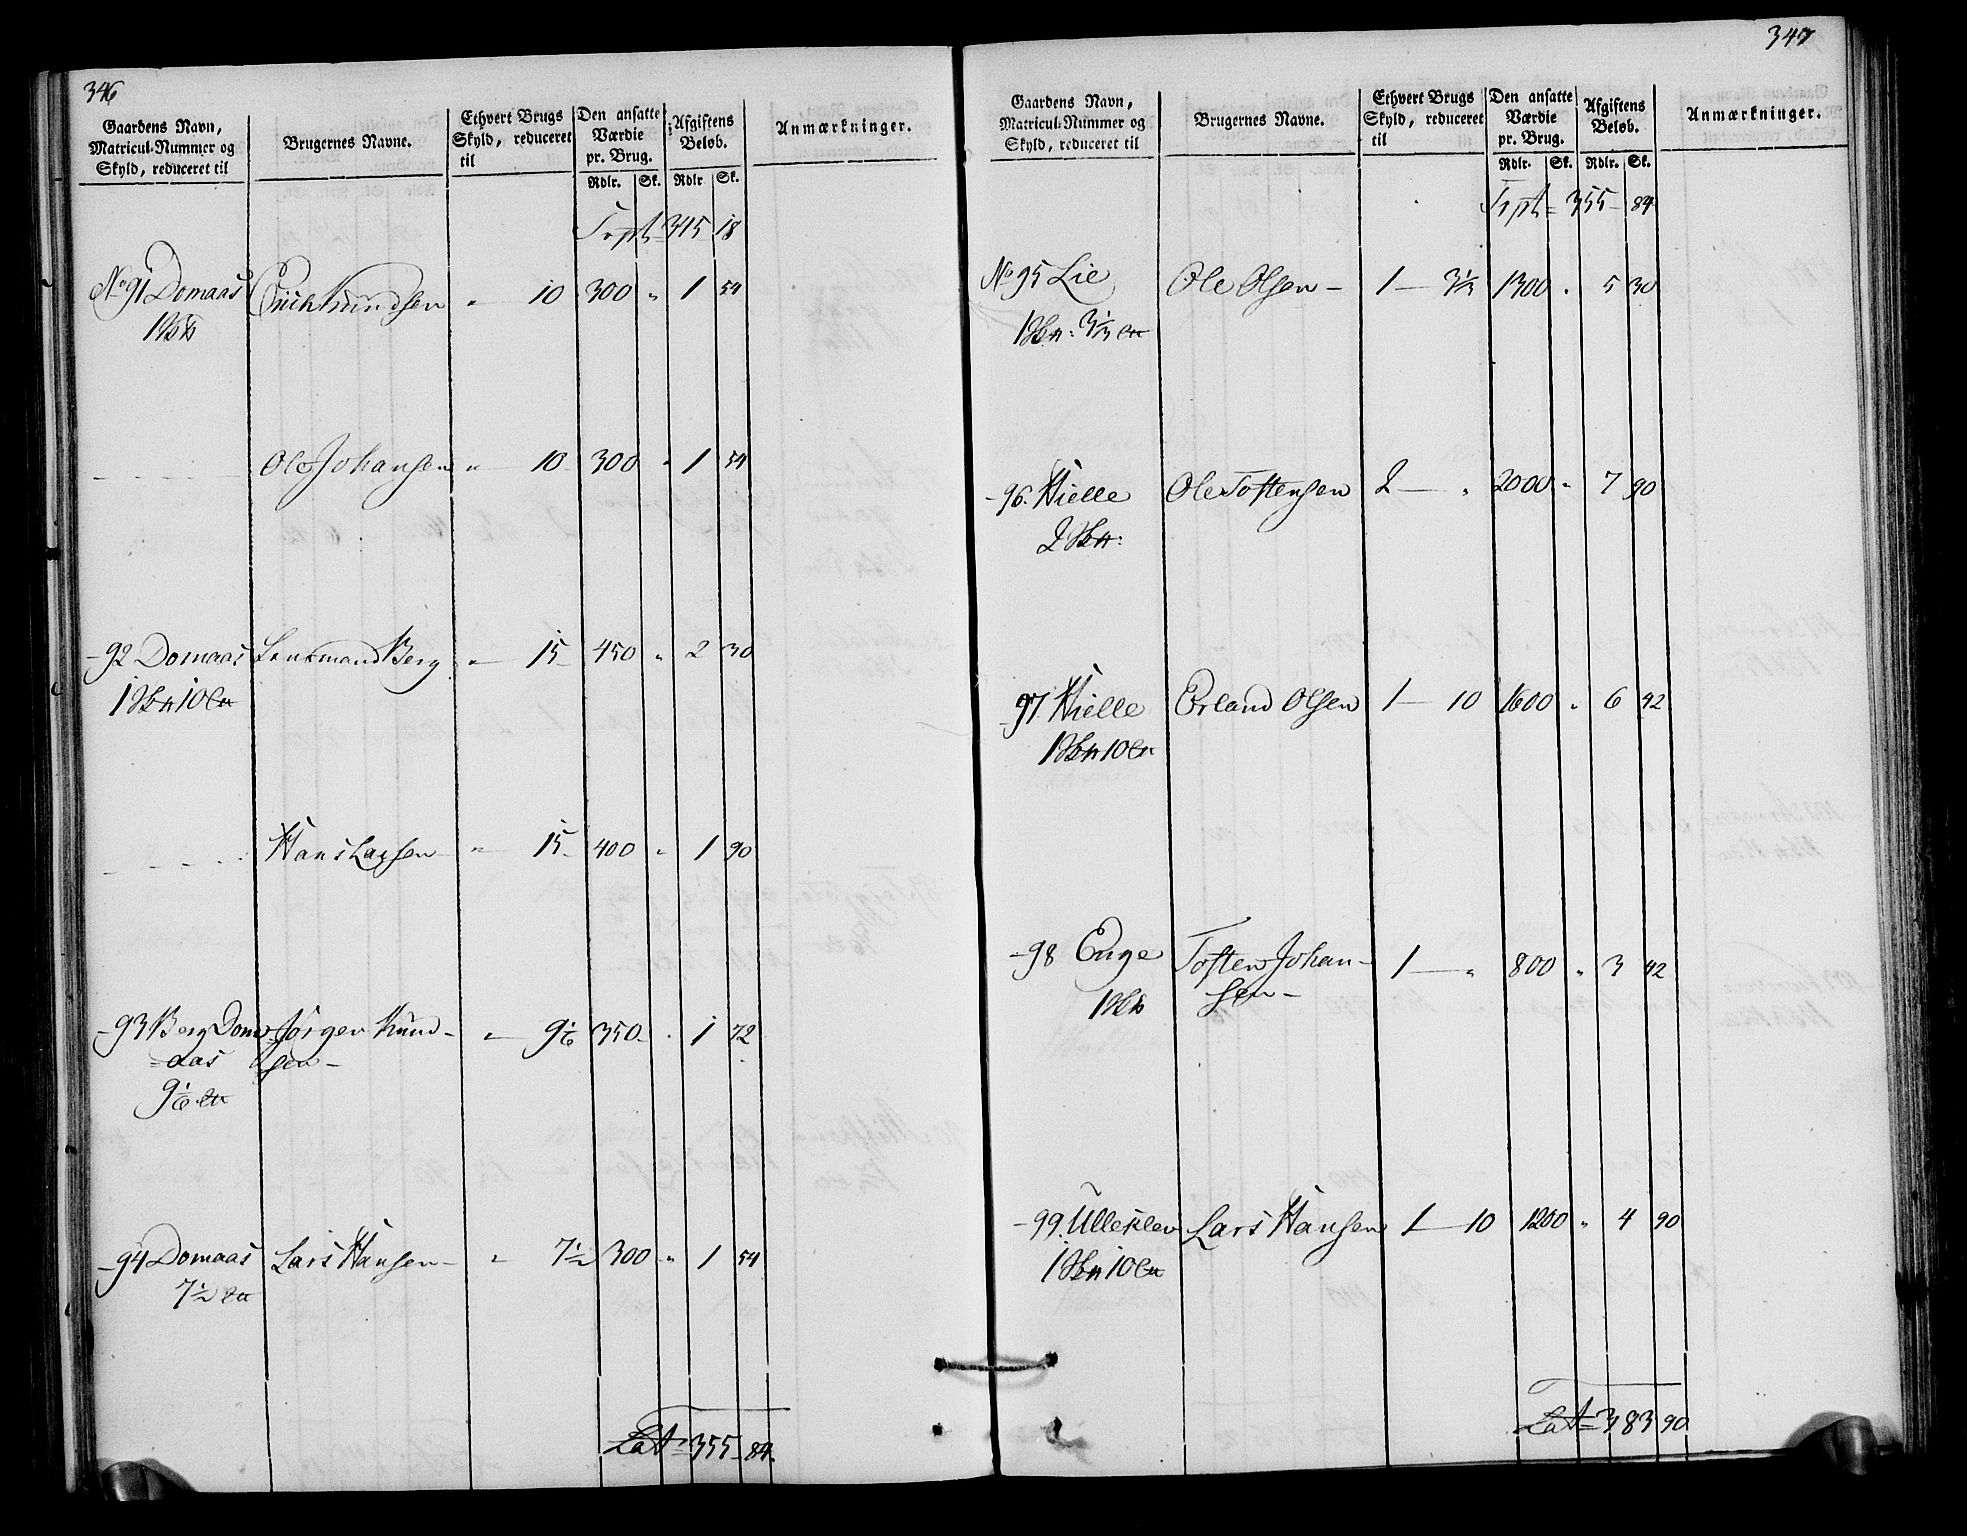 346
Gaardens Navn, Matricul-Nummer og Skyld, reduceret til
Brugernes Navne.
Ethvert Brugs Skyld, reduceret til
Den ansatte Værdie pr. Brug.
Afgiftens Beløb.
Anmærkninger.
Rdlr. Sk. Rdlr Sk.
Trpt 345 18
No 91 Domaas Erich Knudsen " 10 300 " 1 54
Ole Johansen " 10 300 " 1 54
- 92 Domaas Lensmand Berg " 15 450 " 2 30
Hans Larsen " 15 400 " 1 90
- 93 Berg Dom- Jørgen Knud- " 9 1/6 350 " 1 72
aas sen
9 1/6
- 94 Domaas Lars Hansen " 7 1/2 300 " 1 54
7 1/2
Lat 355 - 84.
347
Gaardens Navn, Matricul-Nummer og Skyld, reduceret til
Brugernes Navne.
Ethvert Brugs Skyld, reduceret til
Den ansatte Værdie pr. Brug.
Afgiftens Beløb.
Anmærkninger.
Rdlr. Sk. Rdlr. Sk.
Trpt = 355 - 84
No 95 Lie Ole Olsen - 1 - 3 1/3 1300 " 5 30
- 96. Hielle Ole Tostensen 2 - " 2000 " 7 90
- 97 Hielle Erland Olsen 1 - 10 1600 " 6 42
- 98 Enge Tosten Johan- 1 - " 800 " 3 42
sen -
- 99. Ulleklev Lars Hansen 1 - 10 1200 " 4 90
Lat = 383 90